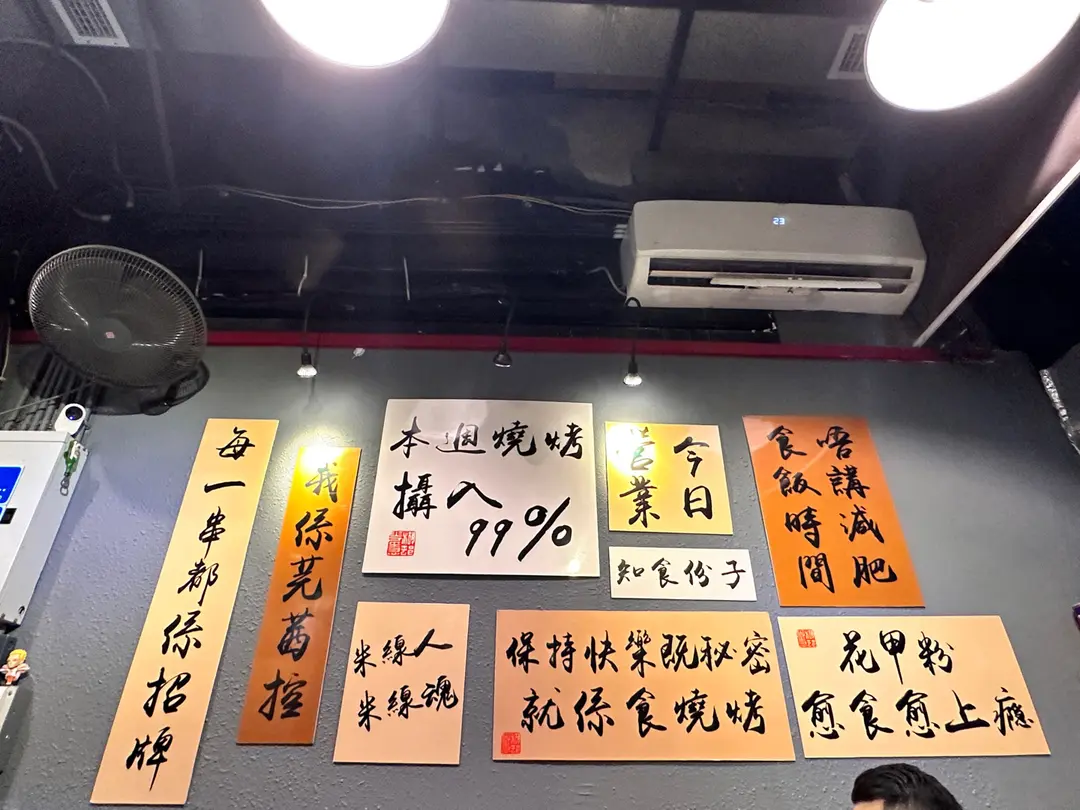 每一串都係招牌
我係芫茜控
本週燒烤
攝入99%
今日
營業
知食份子
唔講減肥
食飯時間
米線人
米線魂
保持快樂既秘密
就係食燒烤
花甲粉
愈食愈上癮
23